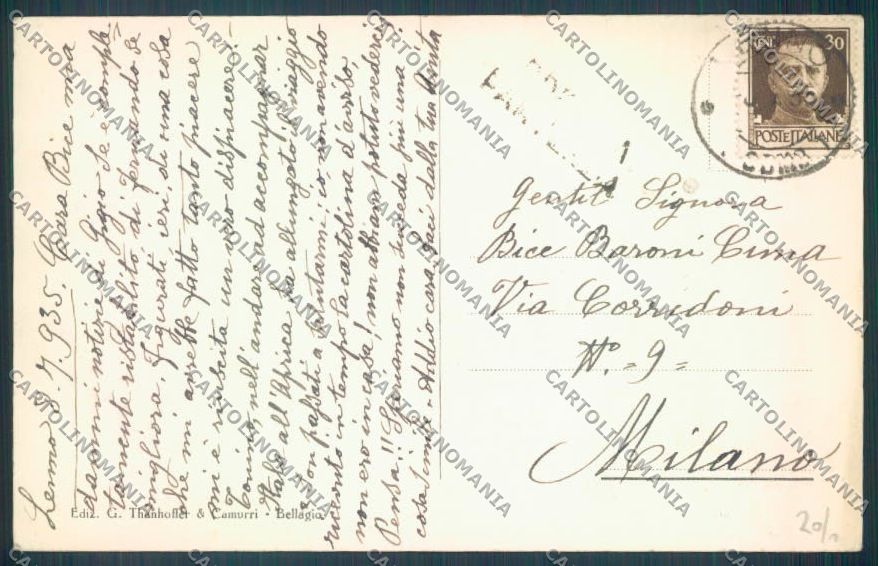 Lenno 8-7-935. Cara Bice mia
dammi notizie di Gigio se è comple-
tamente ristabilito di Fernando se
migliora. Figurati ieri, di una cosa
che mi avrebbe fatto tanto piacere
mi è riuscita un vero dispiacere -
Tonino, nell'andare ad accompagnar
all'Aprica, ha allungato il viaggio
e son passati a salutarmi; io, non avendo
ricevuto in tempo la cartolina d'avviso,
non ero in casa! non abbiam potuto vederci
Pensa!! Speriamo non succeda più una
cosa simile. Addio cara, baci dalla tua
Ediz. G. Thanhoffer & Camurri - Bellagio
30
POSTE ITALIANE
COMO
Gentil Signora
Bice Baroni Cima
Via Corridoni
N.º = 9 =
Milano
20/
CARTOLINOMANIA